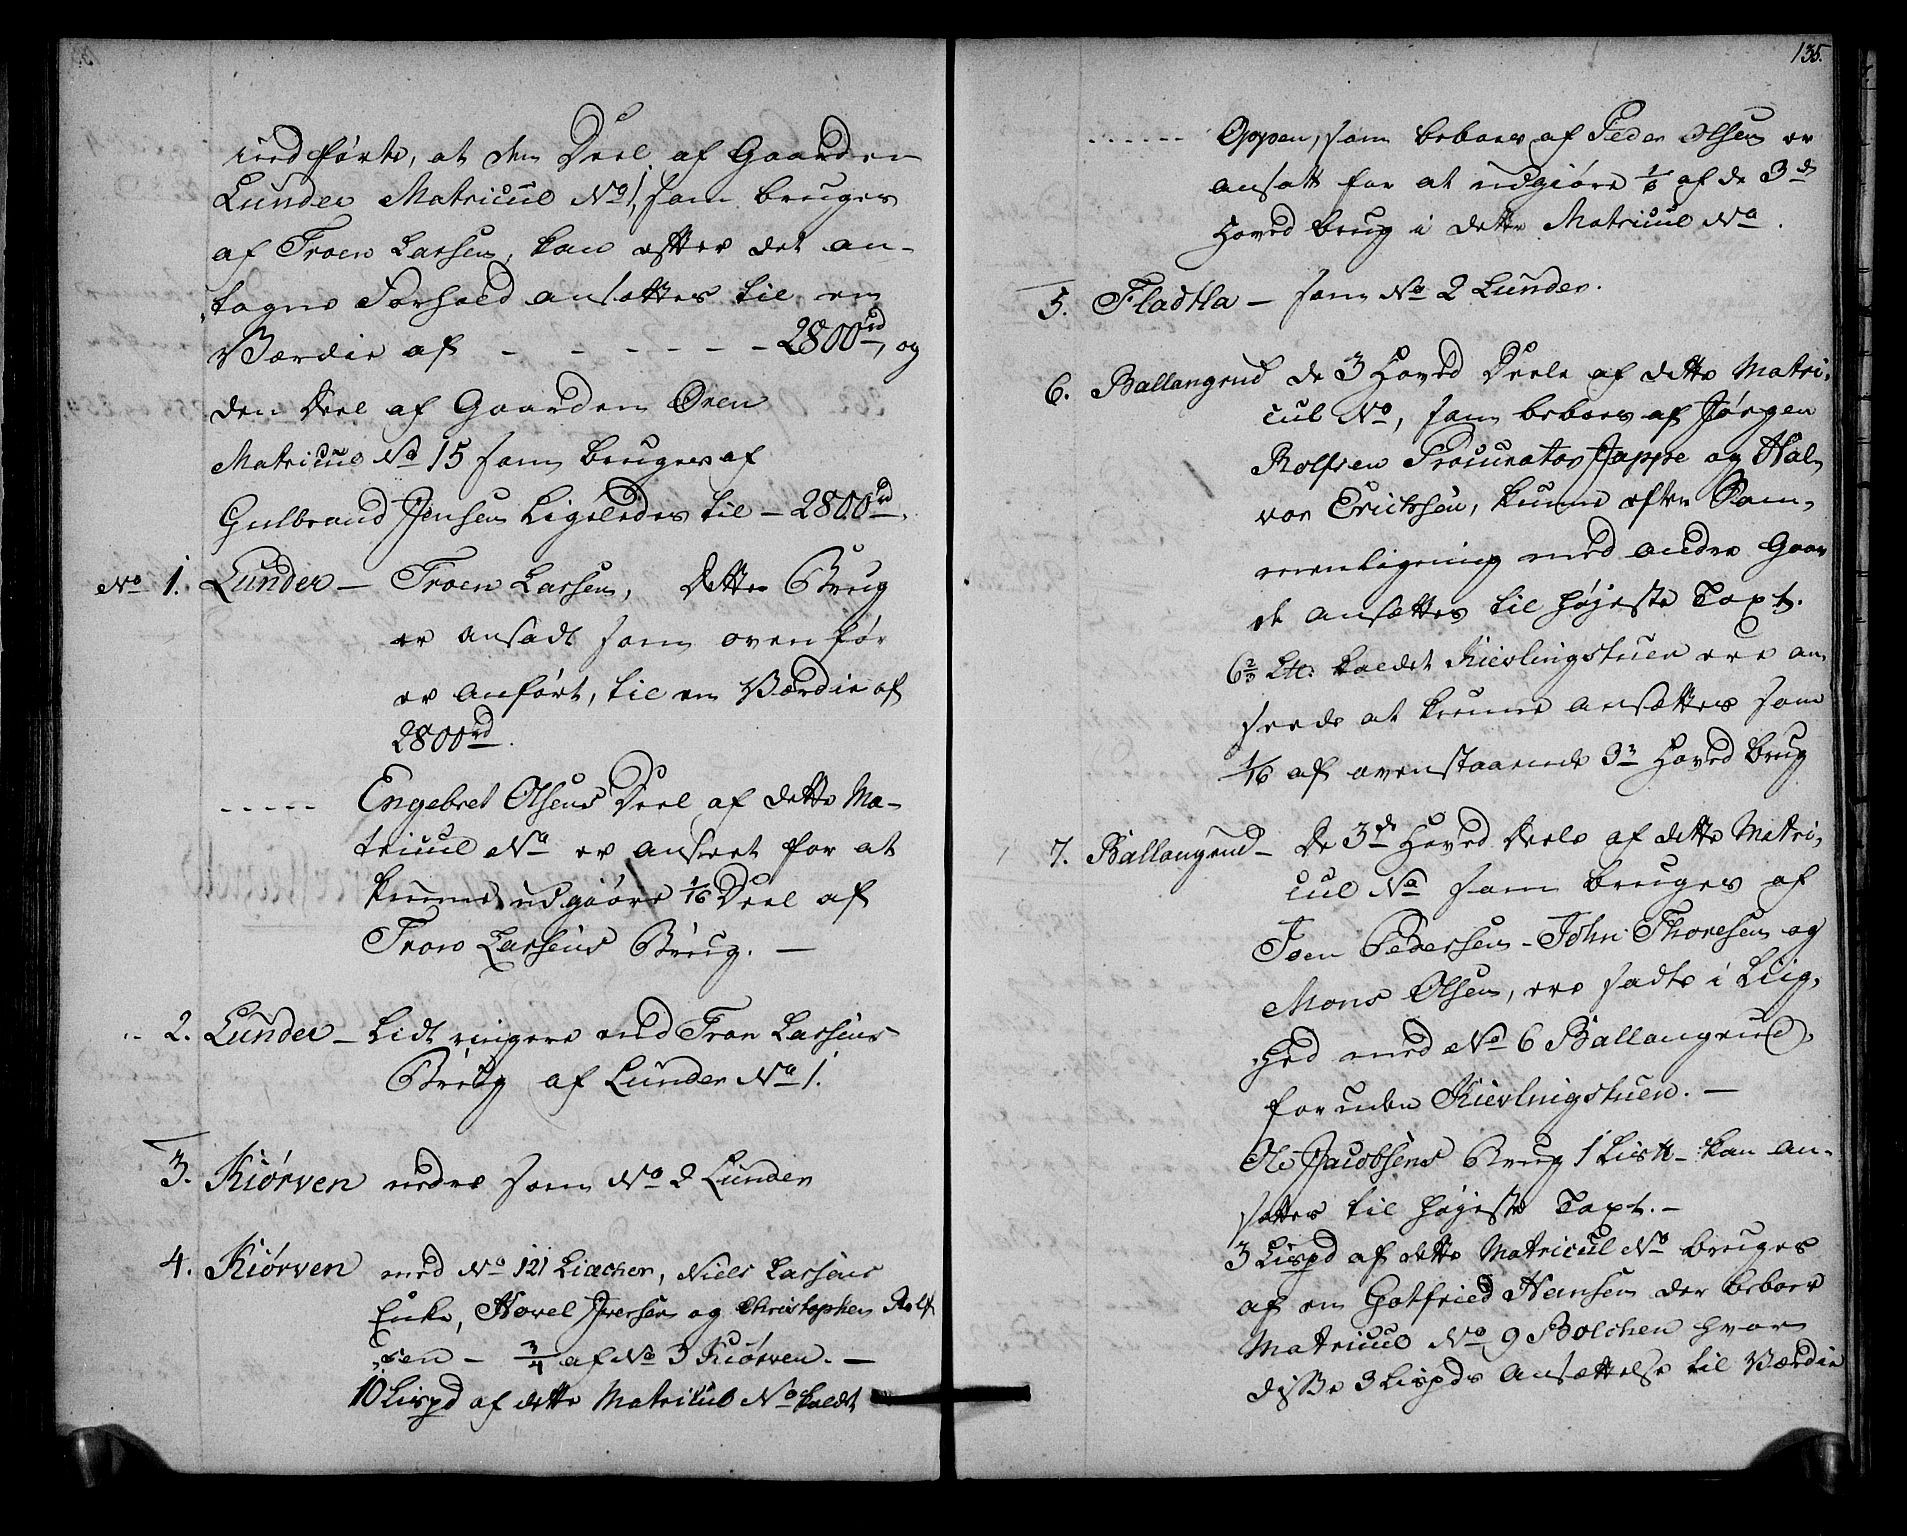 indførte, at den Deel af Gaarden
Lunder Matricul No 1, som bruges
af Troen Larsen, kan efter det an-
tagne Forhold ansættes til en
Værdie af - - - - - - 2800rd, og
den Deel af Gaarden Øren
Matricul No 15 som bruges af
Gulbrand Jensen Ligeledes til - 2800rd.
No 1. Lunder - Troen Larsen, dette Brug
er ansadt som ovenfør
er anført, til en Værdie af
2800rd.
----- Engebret Olsens Deel af dette Ma-
tricul No er anseet for at
kunne udgiøre 1/16 Deel af
Tron Larsens Brug. -
2. Lunder - Lidt ringere end Tron Larsens
Brug af Lunder No 1.
3. Kiørven nedre som No 2 Lunder
4. Kiørven med No 121 Liæchen, Niels Larsens
Enke, Hovel Iversen og Christopher Rolf-
sen - 3/4 af No 3 Kiørven. -
10 Lispd af dette Matricul No kaldet
135.
------ Oppen, som beboes af Peder Olsen er
ansatt for at udgiøre 1/8 af de 3de
Hoved brug i dette Matricul No.
5. Fladtla - som No 2 Lunder.
6. Ballangrud de 3 Hoved Deele af dette Matri-
cul No, som beboes af Jørgen
Rolfsen Procurator Jappe og Hal-
vor Erichsen, kunne efter Sam-
menligning med andre Gaar
de ansættes til høyeste Taxt.
6 2/3 Ltt: kaldet Kievlingstuen ere an-
seede at kunne ansættes som
1/16 af ovenstaaende 3 Hoved brug
7. Ballangrud - De 3de Hoved Deele af dette Matri-
cul No som bruges af
Joen Pedersen - John Thoresen og
Mons Olsen, ere sadte i Liig-
hed med No 6 Ballangrud,
foruden Kievlingstuen. -
Ole Jacobsens Brug 1 Lisp - kan an-
sættes til høyeste Taxt. -
3 Lispd af dette Matricul No bruges
af en Gotfried Hansen der beboer
Matricul No 9 Bolchen hvor
disse 3 Lispds Ansættelse til Værdie